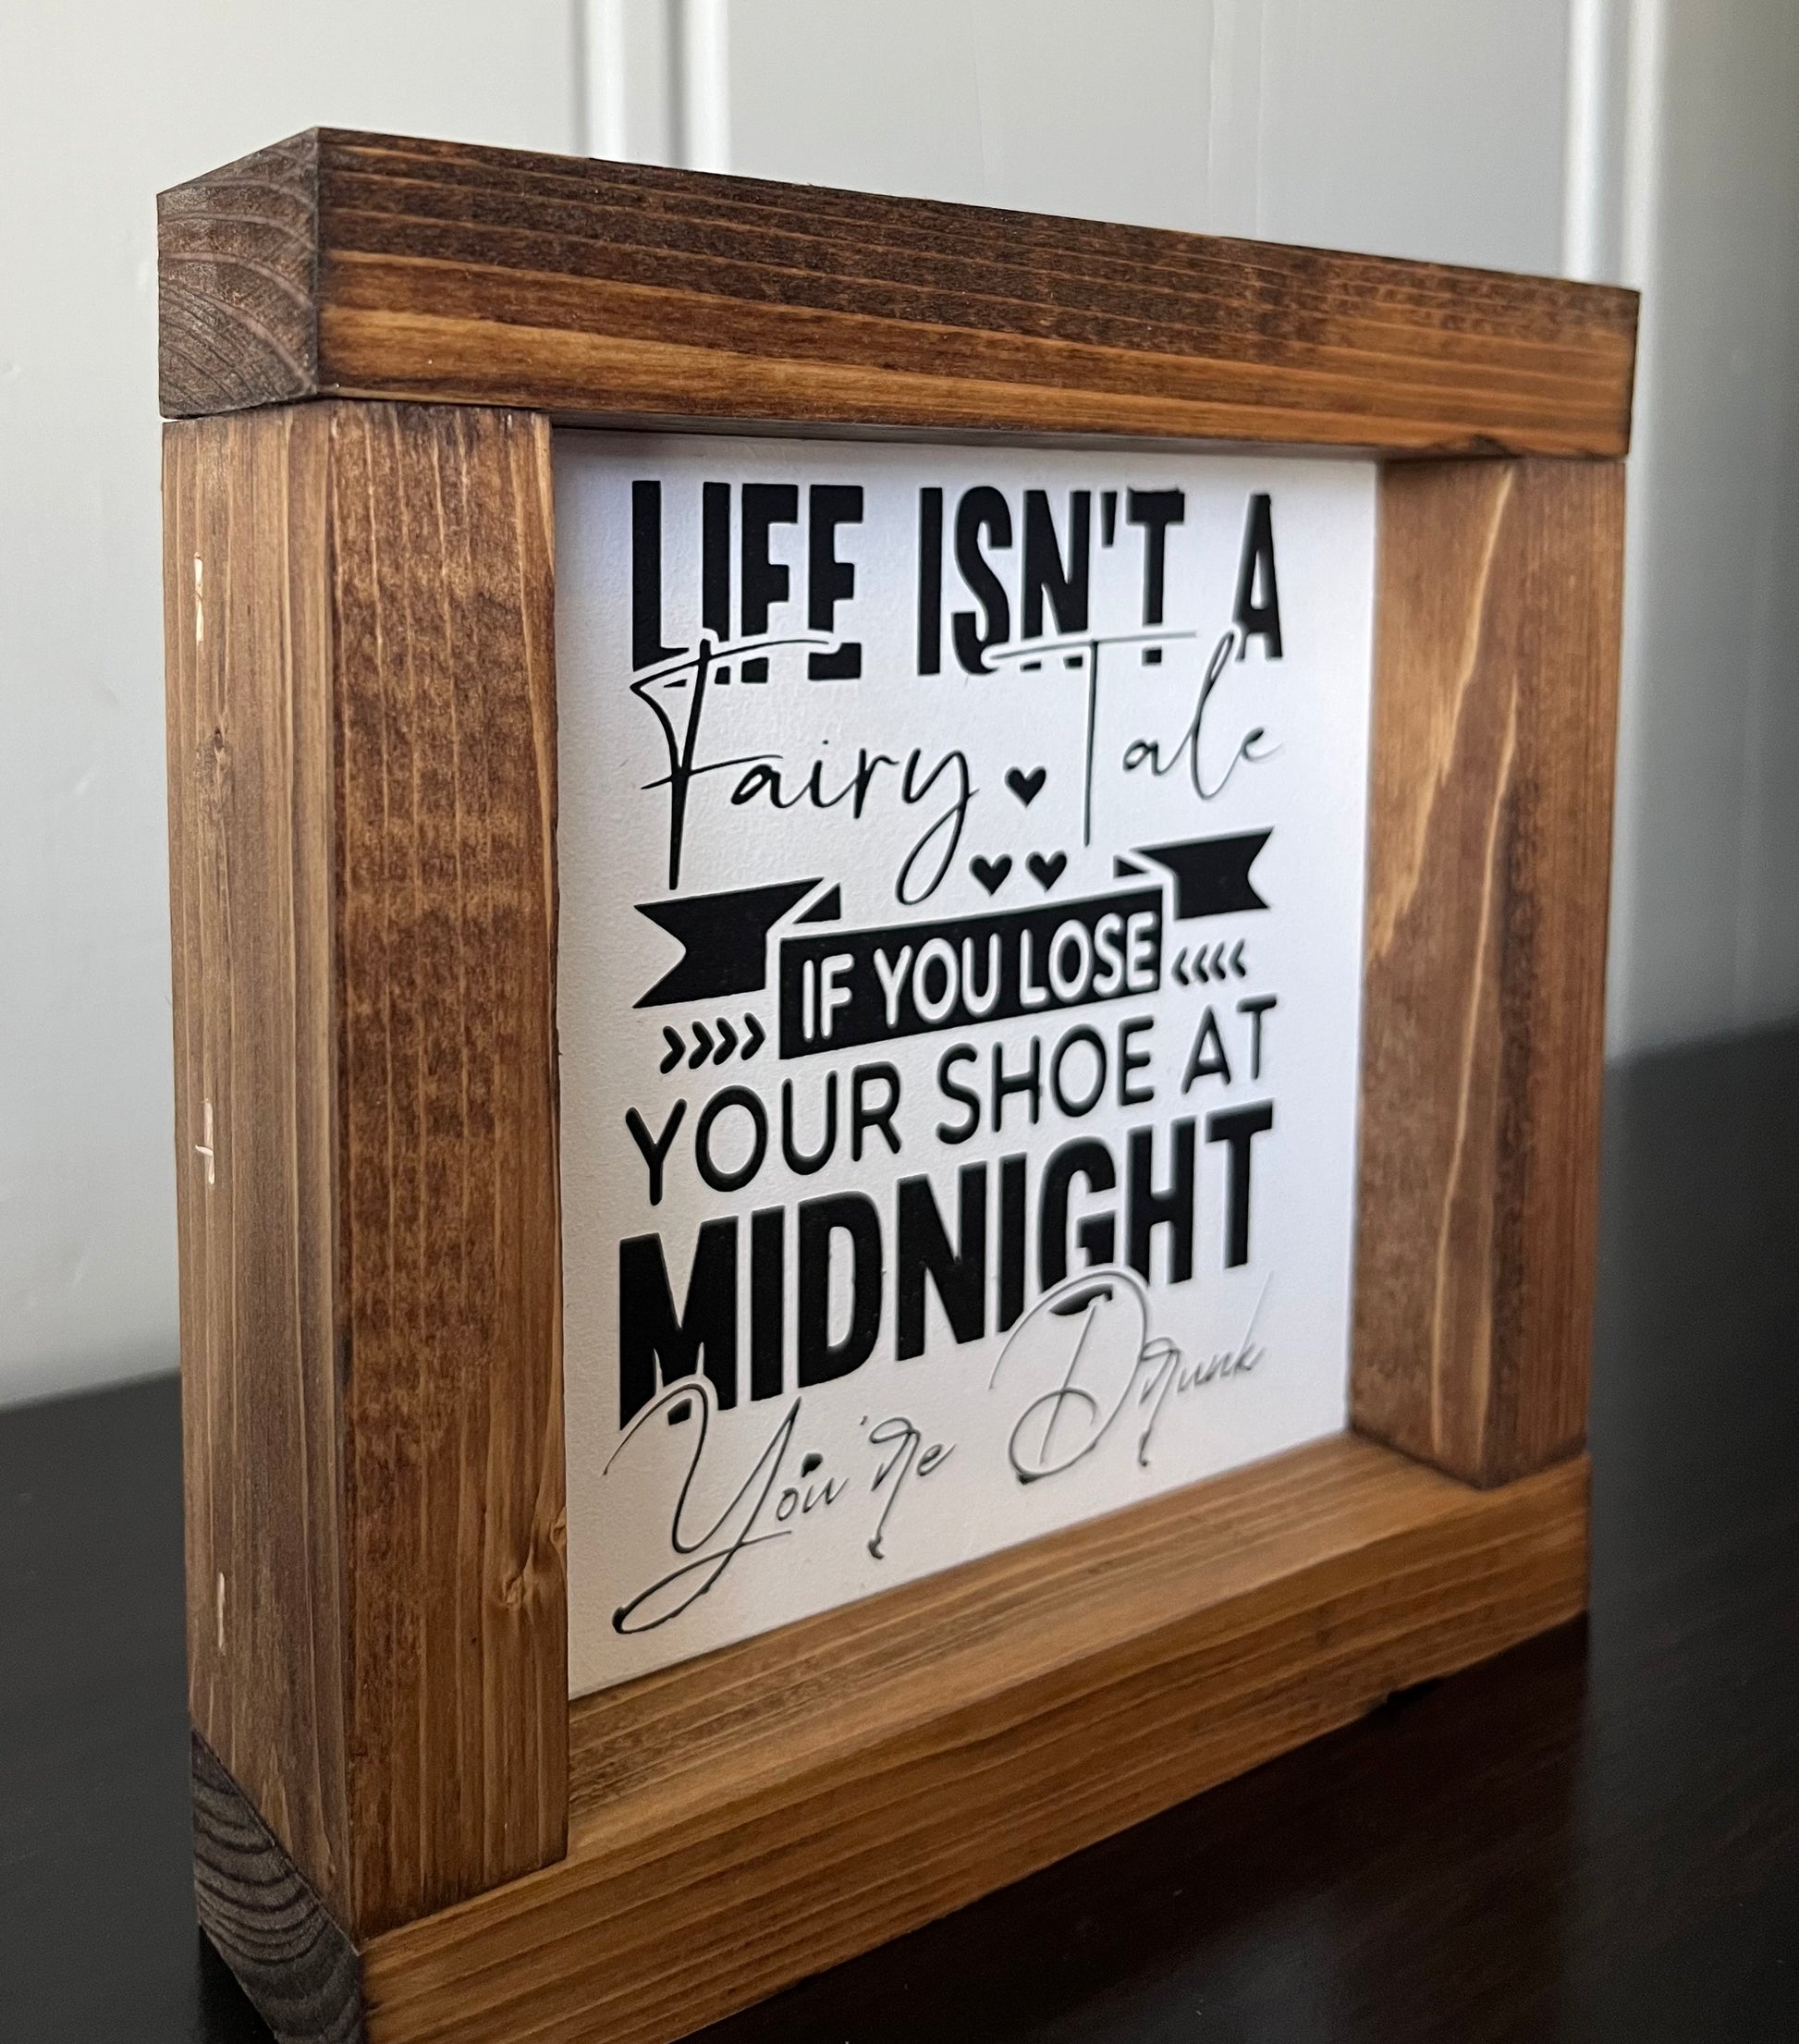 LIFE ISN'T A
Fairy Tale
IF YOU LOSE
YOUR SHOE AT
MIDNIGHT
You're Drunk